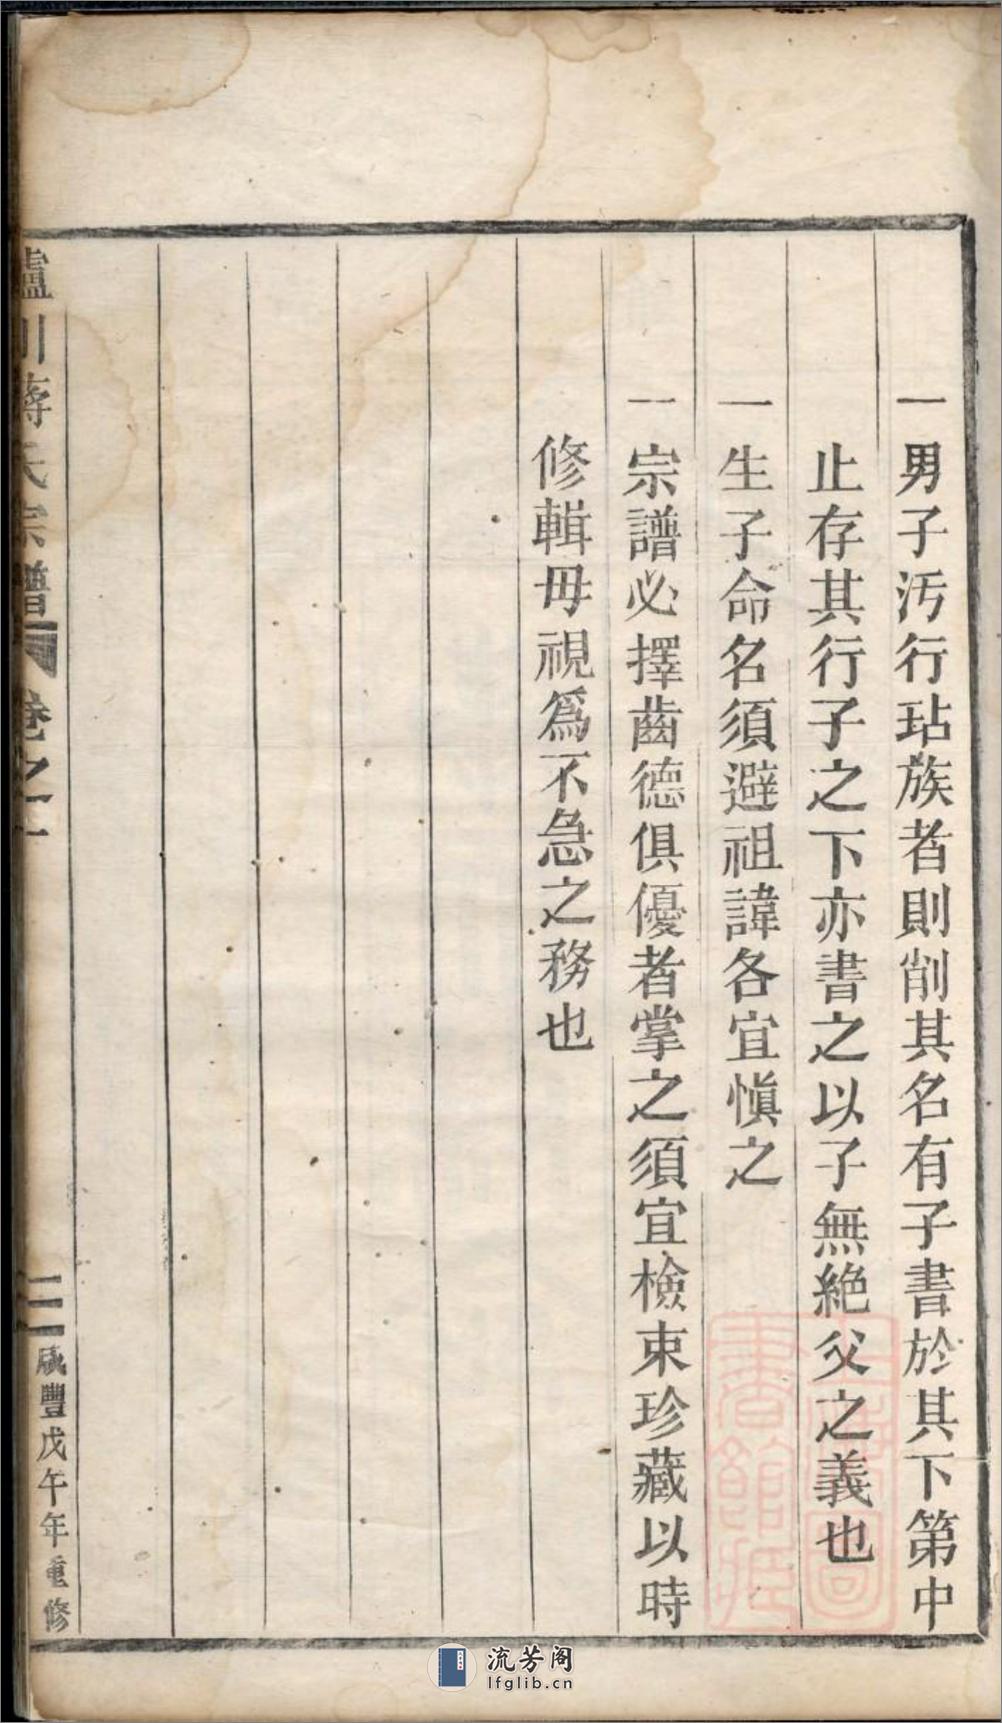 一男子汚行玷族者則削其名有子書於其下第中
止存其行子之下亦書之以子無絶父之義也
一生子命名須避祖諱各宜愼之
一宗譜必擇齒德俱優者掌之須宜檢束珍藏以時
修輯毋視爲不急之務也
川蔣氏宗譜 卷之一
咸豐戊午年重修
流芳阁
lfglib.cn